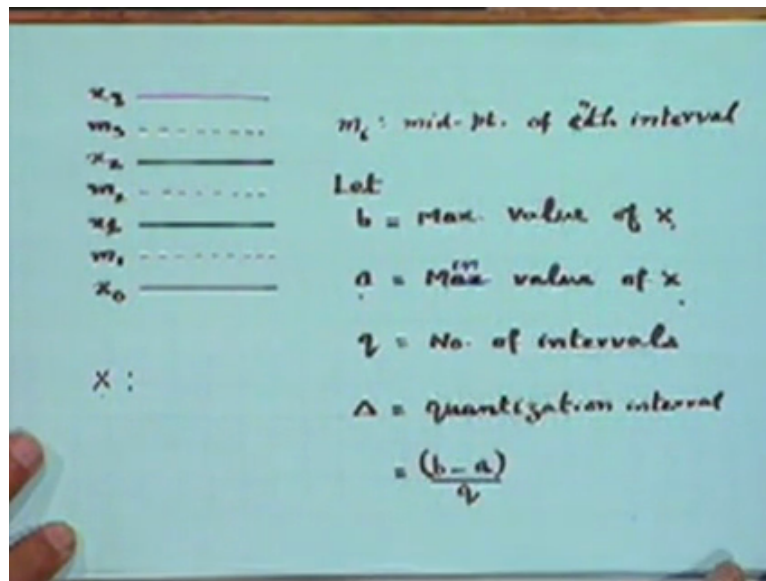 x₃
m₃
x₂
m₂
x₁
m₁
x₀
X :
mᵢ : mid-pt. of ith interval
Let
b = Max. value of X
a = Min value of X
q = No. of intervals
Δ = quantization interval
= (b - a)
q